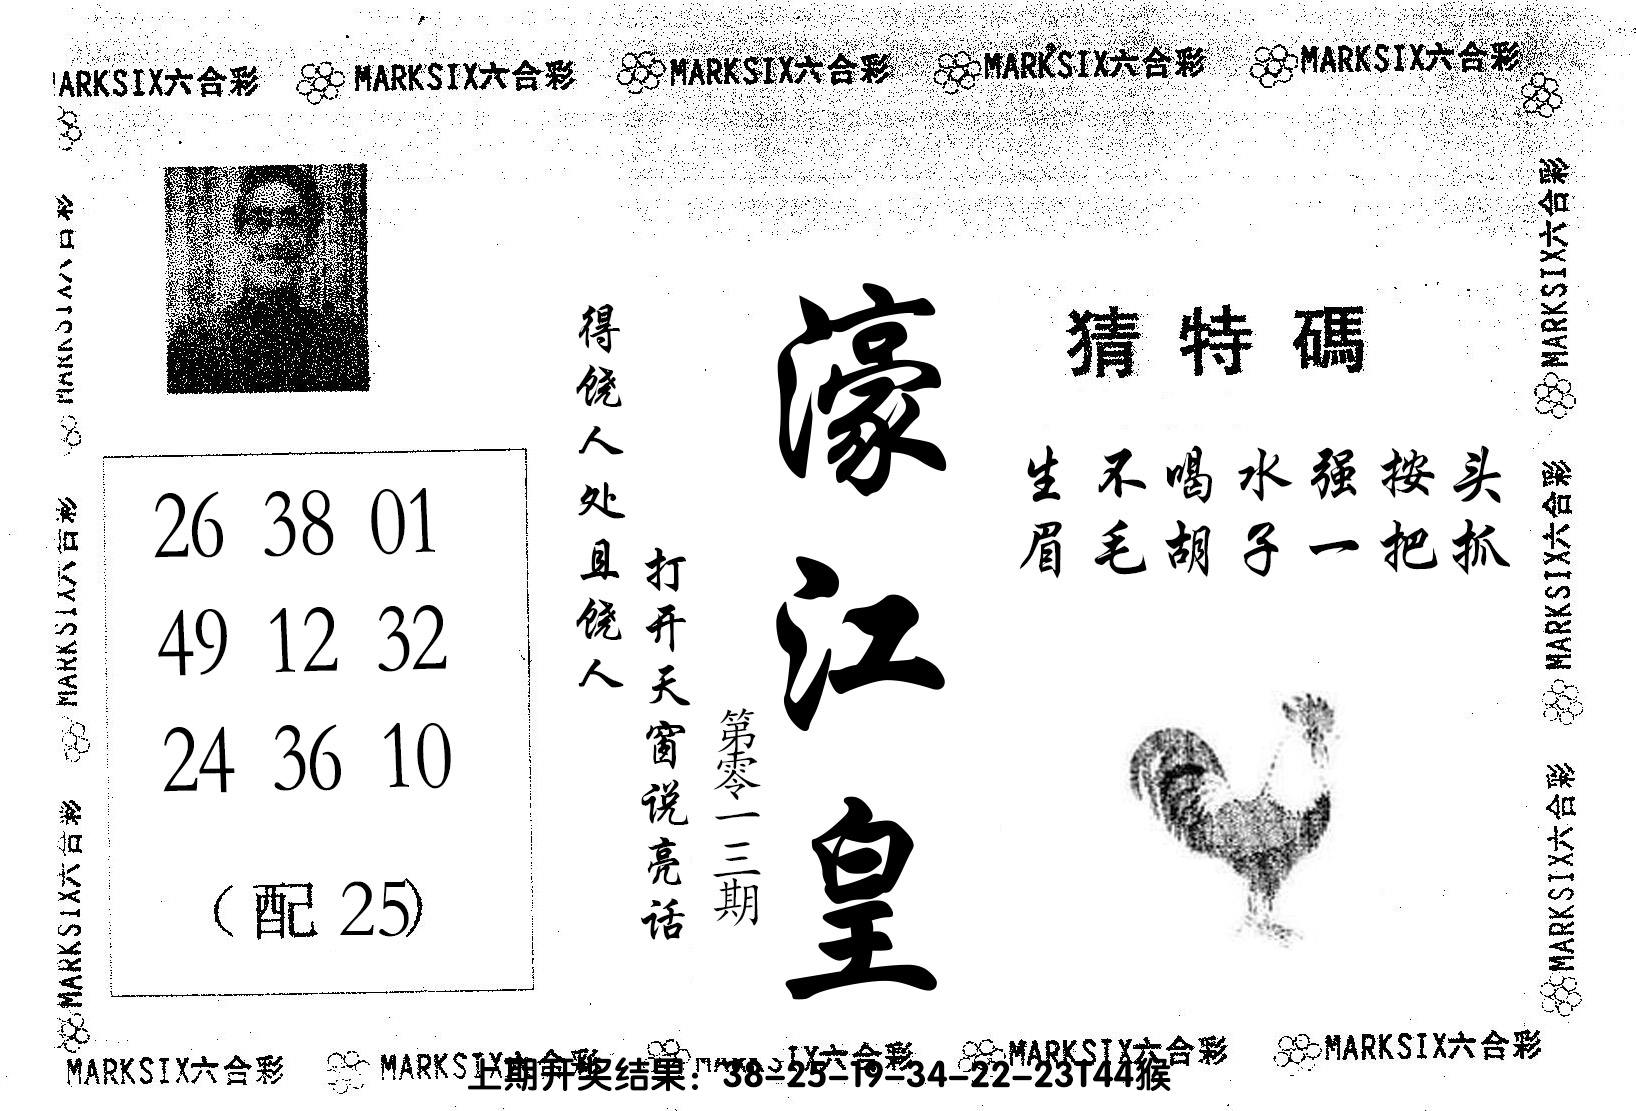 ARKSIX六合彩 MARKSIX六合彩 MARKSIX六合彩 MARKSIX六合彩 MARKSIX六合彩
MARKSIX六合彩
MARKSIX六合彩
MARKSIX六合彩
MARKSIX六合彩
MARKSIX六合彩
26 38 01
49 12 32
24 36 10
(配 25)
得饶人处且饶人
打开天窗说亮话
第零一三期
濠江皇
猜特碼
生不喝水强按头
眉毛胡子一把抓
MARKSIX六合彩 MARKSIX六合彩 MARKSIX六合彩 MARKSIX六合彩
上期开奖结果：38-25-19-34-22-23T44猴